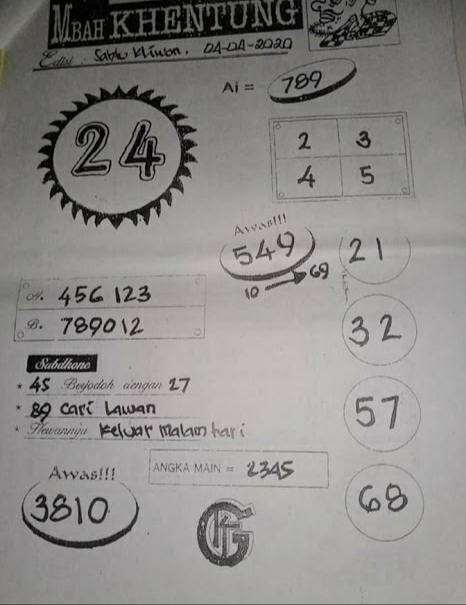 MBAH KHENTUNG
Edisi : Sabtu Kliwon. 04-04-2020
Ai = 789
24
2 3
4 5
Awas!!!
549
10 → 69
21
A. 456 123
B. 789012
32
Sabdhone
* 45 Berjodoh dengan 27
* 89 Cari Lawan
* Hewannya Keluar Malam hari
57
Awas!!!
3810
ANGKA MAIN = 2345
68